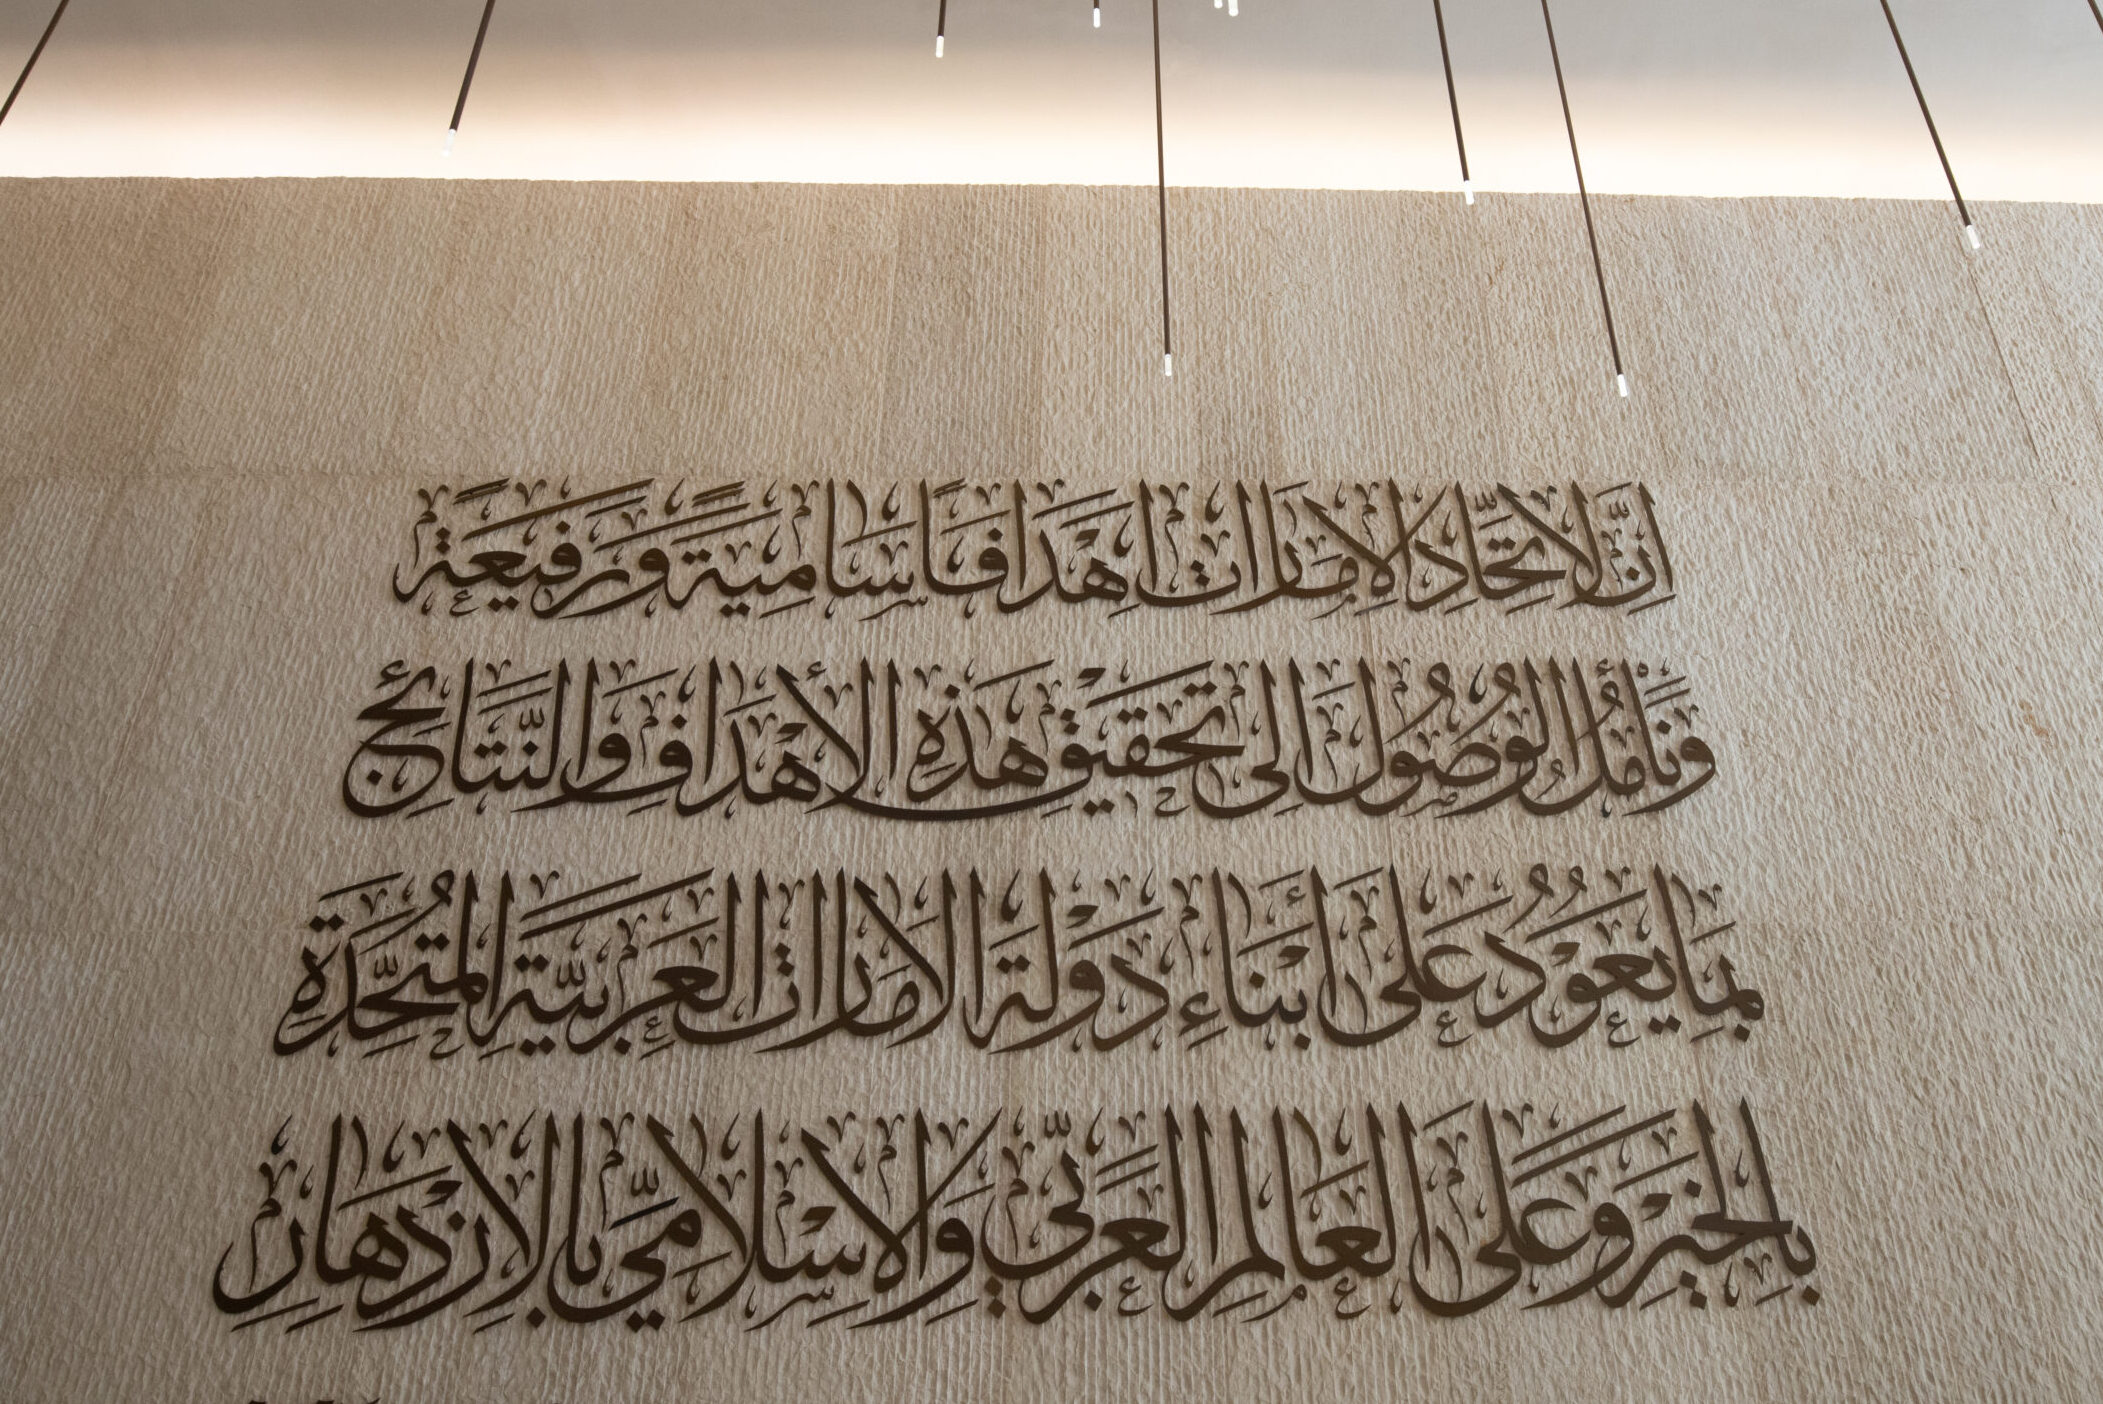 اِنَّ لاتِحَّادِ لاِمَارَاتِ اَهْدَافَاً سَامِيَةً وَرَفيعَةً
وَنَأْمَلُ الوُصُولَ اِلى تَحقيْقِ هَذِهِ الأَهْدَافِ وَالنَّتَائجِ
بمَا يَعُوْدُ عَلَى أبْنَاءِ دَوْلَةِ الامَارَات العَرَبيَّةِ المُتَحِّدَةِ
بِالخَيْرِ وَعَلَى العَالَمِ العَرَبيِّ وَالاِسْلامِيِّ بالاِزْدِهَارِ